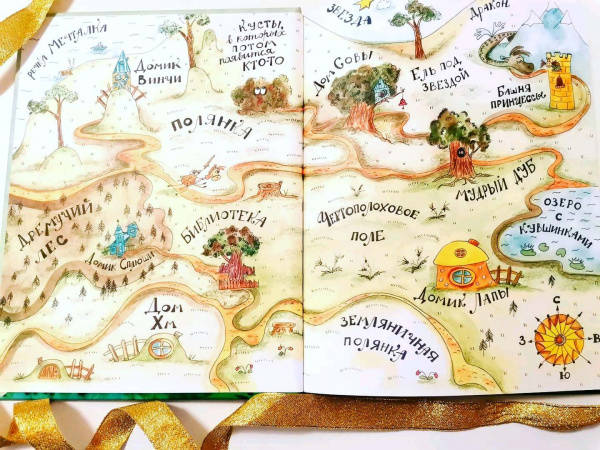 река Мечталка
Домик
Винчи
Кусты,
в которых
потом
появится
кто-то
Полянка
Дремучий
лес
Домик Спюши
Библиотека
Дом
Хм
Звезда
Дракон
Дом Совы
Ель под
звездой
Башня
принцессы
Мудрый дуб
Чертополоховое
поле
Озеро
с
кувшинками
Домик Лапы
Земляничная
полянка
С
З
В
Ю